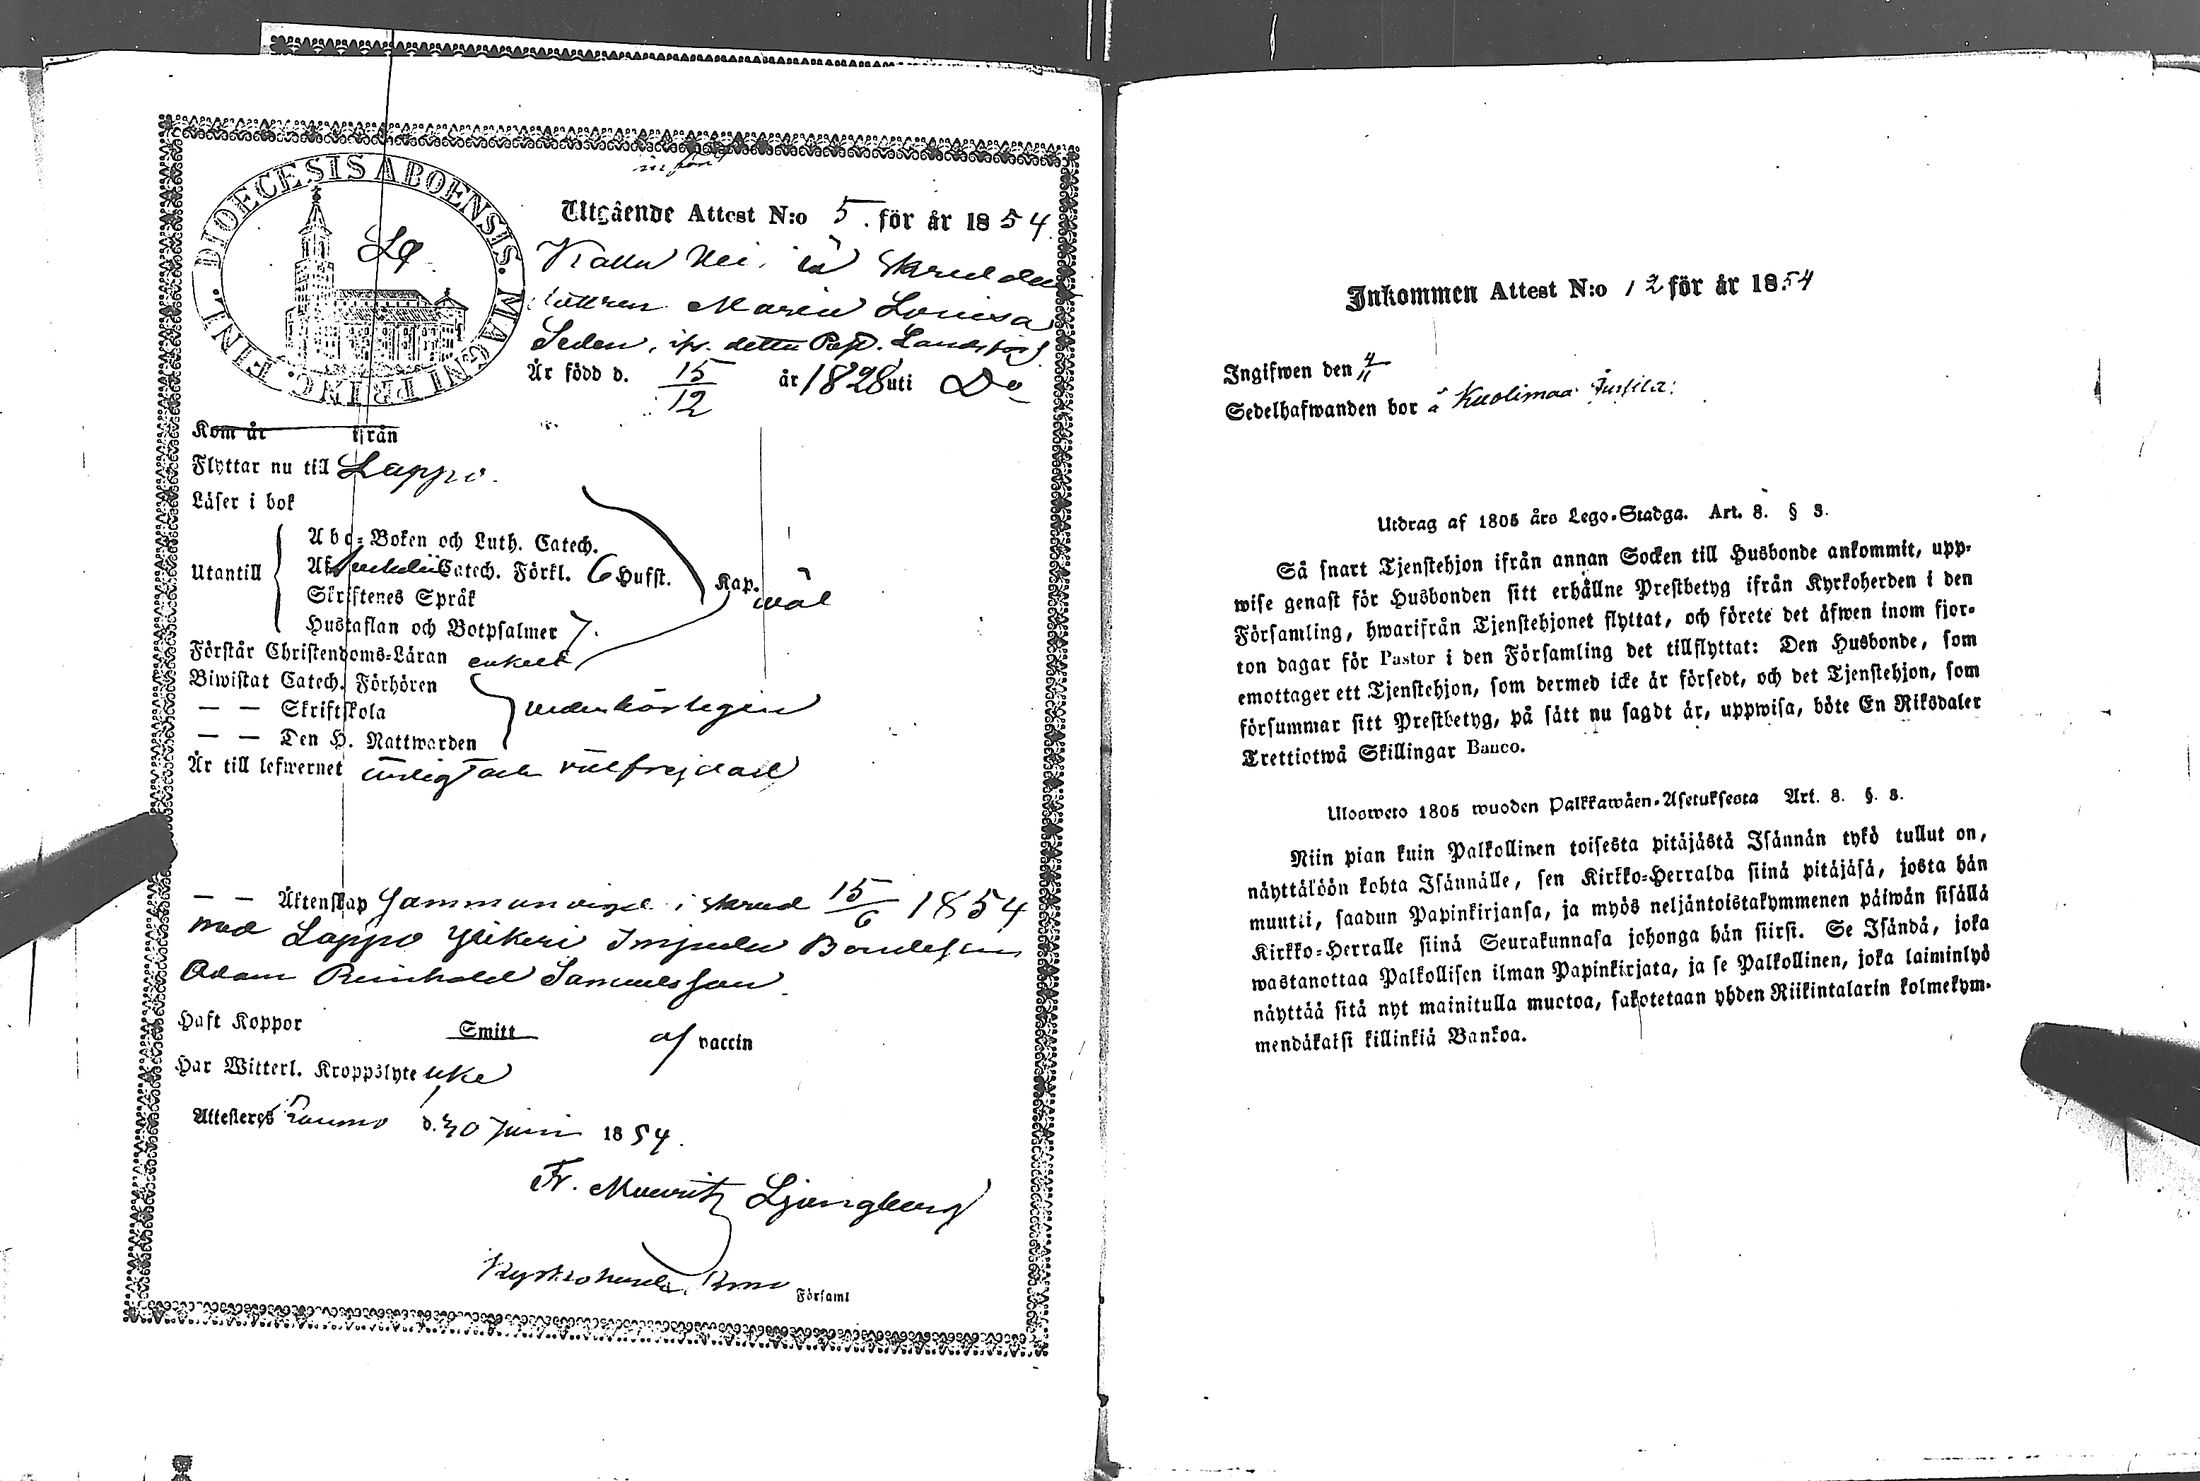 DIOECESIS ABOENSIS. MAGNI PRINC. FINL.
Utgående Attest N:o 5. för år 1854
Maria Lovisa
Är född d. 15/12 år 1828 uti Do
Kom år ifrån
Flyttar nu till Lappo.
Läser i bok
Utantill
Abc-Boken och Luth. Catech.
Catech. Förkl. 6 Hufst.
Skriftenes Språk
Hustaflan och Botpsalmer 7.
Kap. wäl
Förstår Christendoms-Läran enkelt
Biwistat Catech. Förhören
— — Skriftskola
— — Den H. Nattwarden
wederbörligen
Är till lefwernet ärlig och välfrejdad
— — Äktenskap Sammanvigd i 15/6 1854
med Lappo
Adam Reinhold Samuelsson.
Haft Koppor Smitt af vaccin
Har Witterl. Kroppslyte icke
Attesteres Raumo d. 30 Juni 1854.
Fr. Mauritz Ljungberg
Kyrkoherde. Församl
Inkommen Attest N:o 12 för år 1854
Ingifwen den 4/11
Sedelhafwanden bor å Kuolimaa Jussila.
Utdrag af 1805 års Lego-Stadga. Art. 8. § 3.
Så snart Tjenstehjon ifrån annan Socken till Husbonde ankommit, upp-
wise genast för Husbonden sitt erhållne Prestbetyg ifrån Kyrkoherden i den
Församling, hwarifrån Tjenstehjonet flyttat, och förete det äfwen inom fjor-
ton dagar för Pastor i den Församling det tillflyttat: Den Husbonde, som
emottager ett Tjenstehjon, som dermed icke är försedt, och det Tjenstehjon, som
försummar sitt Prestbetyg, på sätt nu sagdt är, uppwisa, böte En Riksdaler
Trettiotwå Skillingar Banco.
Ulosweto 1805 wuoden Palkkawäen-Asetuksesta Art. 8. §. 3.
Niin pian kuin Palkollinen toisesta pitäjästä Isännän tykö tullut on,
näyttäköön kohta Isännälle, sen Kirkko-Herralda siinä pitäjäsä, josta hän
muutti, saadun Papinkirjansa, ja myös neljäntoistakymmenen päiwän sisällä
Kirkko-Herralle siinä Seurakunnasa johonga hän siirsi. Se Isändä, joka
wastanottaa Palkollisen ilman Papinkirjata, ja se Palkollinen, joka laiminlyö
näyttää sitä nyt mainitulla muotoa, sakotetaan yhden Riikintalarin kolmekym-
mendäkaksi killinkiä Bankoa.